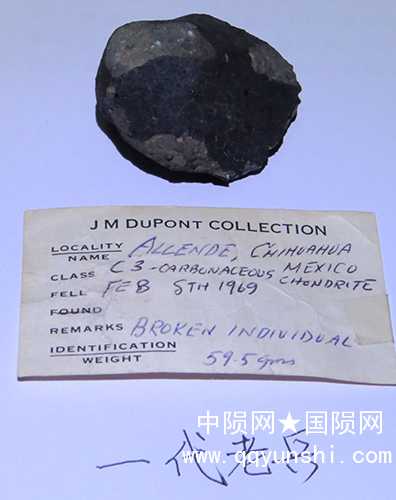 J M DuPONT COLLECTION
LOCALITY
NAME ALLENDE, CHIHUAHUA
CLASS C3-CARBONACEOUS MEXICO
FELL FEB 8TH 1969 CHONDRITE
FOUND
REMARKS BROKEN INDIVIDUAL
IDENTIFICATION
WEIGHT 59.5 gms
中陨网★国陨网
www.qqyunshi.com
一代老兵